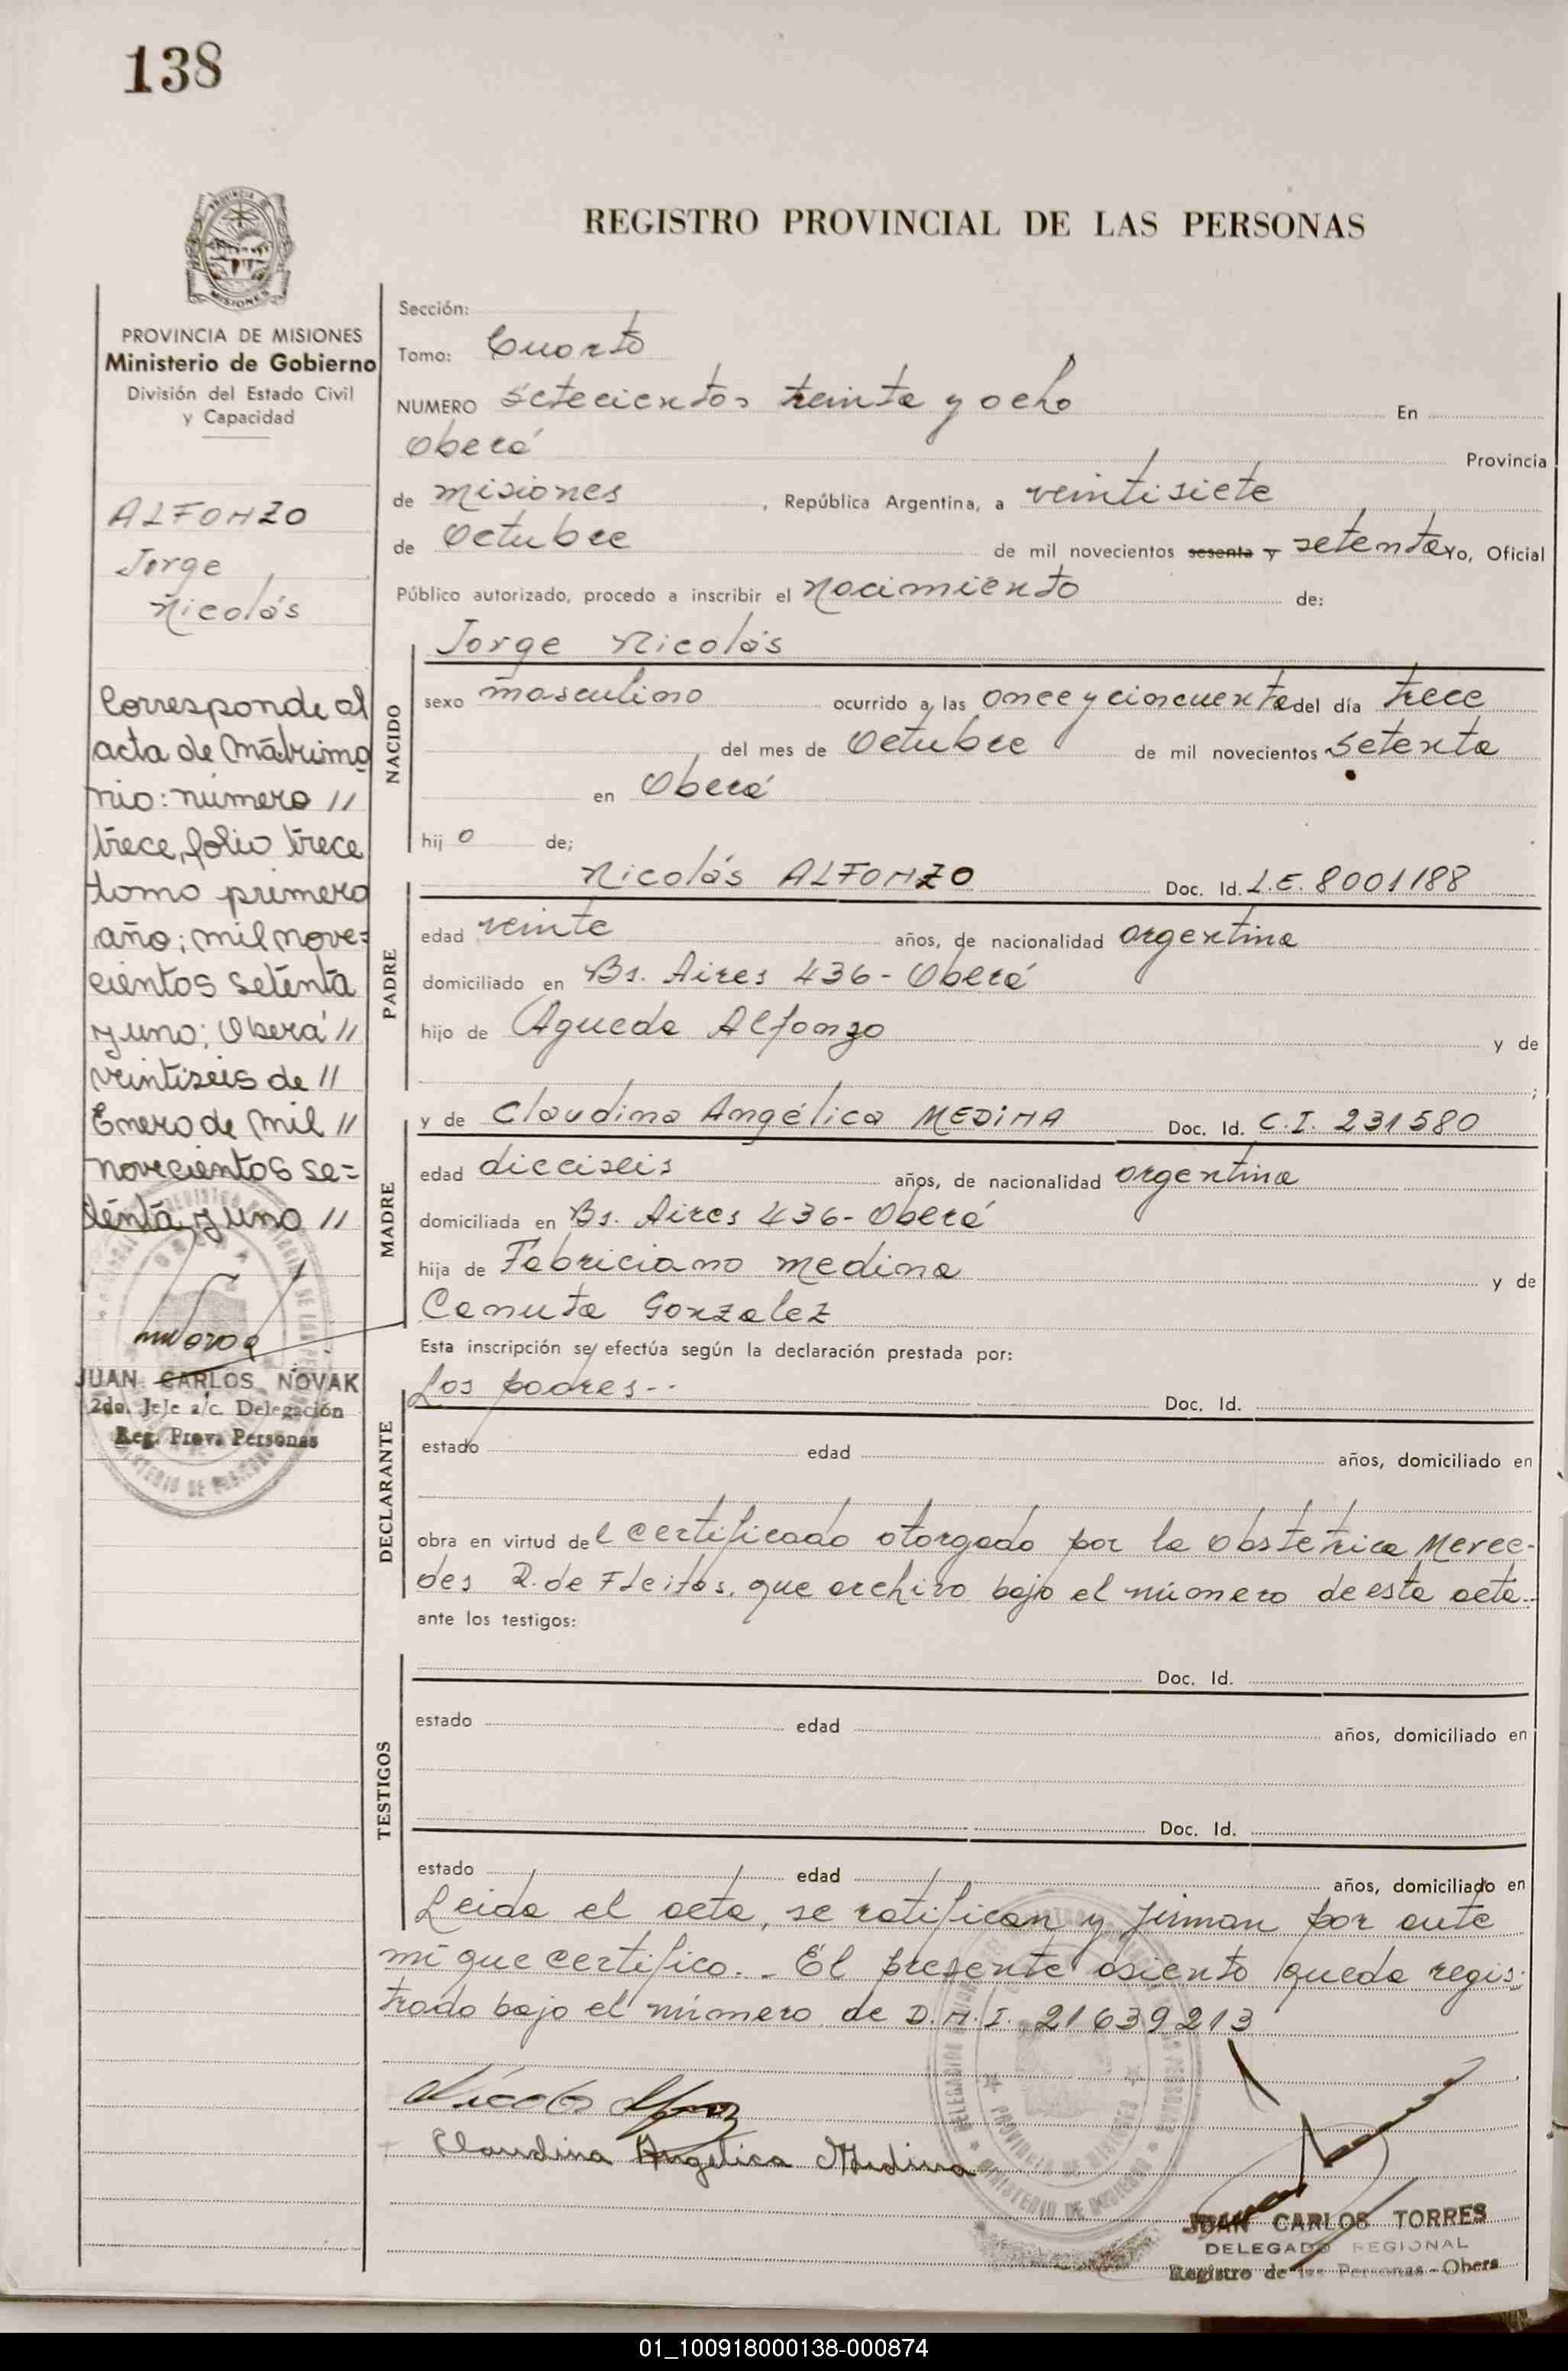 138
PROVINCIA DE MISIONES
REGISTRO PROVINCIAL DE LAS PERSONAS
PROVINCIA DE MISIONES
Ministerio de Gobierno
División del Estado Civil
y Capacidad
ALFONZO
Jorge
Nicolás
Corresponde al
acta de Matrimo
nio: número //
trece, folio trece
tomo primero
año; mil nove=
cientos setenta
y uno; Oberá //
veintiseis de //
Enero de mil //
novecientos se=
tenta y uno //
JUAN CARLOS NOVAK
2do. Jefe a/c. Delegación
Reg. Prov. Personas
Sección:
Tomo: Cuarto
NUMERO setecientos treinta y ocho En
Oberá Provincia
de Misiones, República Argentina, a veintisiete
de Octubre de mil novecientos sesenta y setenta yo, Oficial
Público autorizado, procedo a inscribir el nacimiento de:
NACIDO
Jorge Nicolás
sexo masculino ocurrido a las once y cincuenta del día trece
del mes de Octubre de mil novecientos setenta
en Oberá
hijo de;
PADRE
Nicolás ALFONZO Doc. Id. L.E. 8001188
edad veinte años, de nacionalidad argentina
domiciliado en Bs. Aires 436 - Oberá
hijo de Agueda Alfonzo y de
;
MADRE
y de Claudina Angélica MEDINA Doc. Id. C.I. 231580
edad dieciseis años, de nacionalidad argentina
domiciliada en Bs. Aires 436 - Oberá
hija de Fabriciano Medina y de
Canuta Gonzalez
Esta inscripción se efectúa según la declaración prestada por:
DECLARANTE
Los padres-- Doc. Id.
estado edad años, domiciliado en
obra en virtud del certificado otorgado por la obstetrica Merce-
des R. de Fleitas, que archivo bajo el número de esta acta.-
ante los testigos:
TESTIGOS
Doc. Id.
estado edad años, domiciliado en
Doc. Id.
estado edad años, domiciliado en
Leida el acta, se ratifican y firman por ante
mi que certifico.- El presente asiento queda regis-
trado bajo el número de D.N.I. 21639213
Nicolas Alfonzo
Claudina Angelica Medina
JUAN CARLOS TORRES
DELEGADO REGIONAL
Registro de las Personas - Obera
01_100918000138-000874